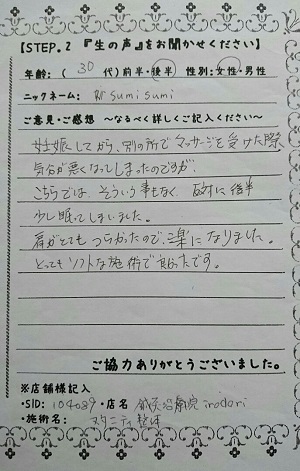 【STEP.2 『生の声』をお聞かせください】
年齢：( 30 代)前半・後半 性別：女性・男性
ニックネーム： sumisumi
ご意見・ご感想 ～なるべく詳しくご記入ください～
妊娠してから、別の所でマッサージを受けた際
気分が悪くなってしまったのですが、
こちらでは、そういう事もなく、反対に後半
少し眠ってしまいました。
肩がとてもつらかったので、楽になりました。
とってもソフトな施術で良かったです。
ご協力ありがとうございました。
※店舗様記入
・SID： 104089 ・店名 鍼灸治療院 irodori
・施術名： マタニティ整体